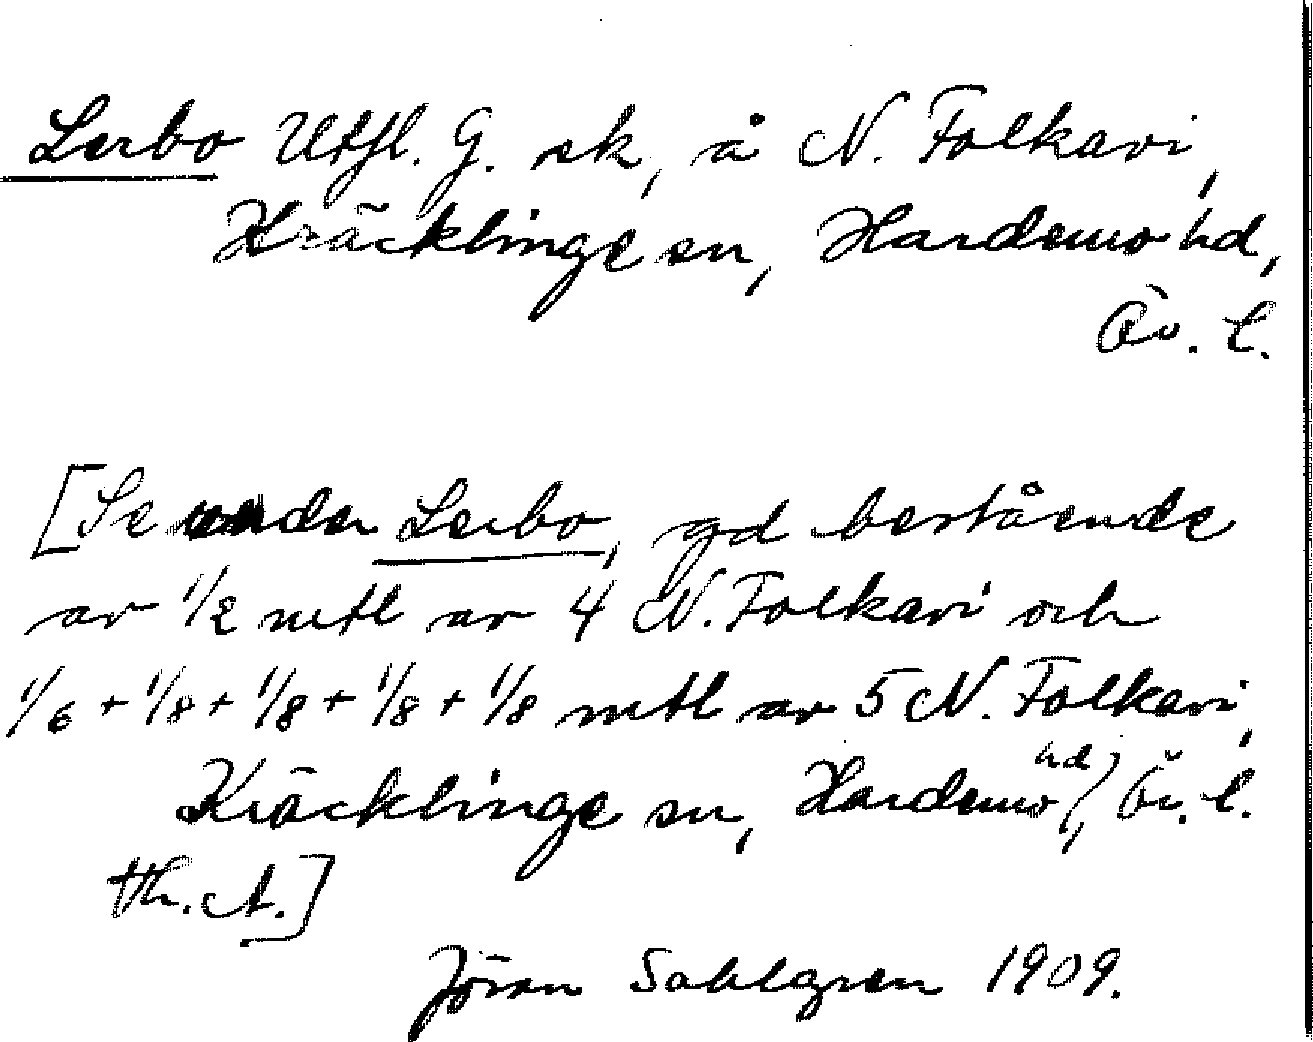 Lerbo Utfl. G. sk, å N. Folkavi,
Kräcklinge sn, Hardemo hd,
Ör. l.
[Se under Lerbo, gd bestående
av 1/2 mtl av 4 N. Folkavi och
1/6 + 1/8 + 1/8 + 1/8 + 1/8 mtl av 5 N. Folkavi,
Kräcklinge sn, Hardemo hd, Ör. l.
th. A.]
Jöran Sahlgren 1909.